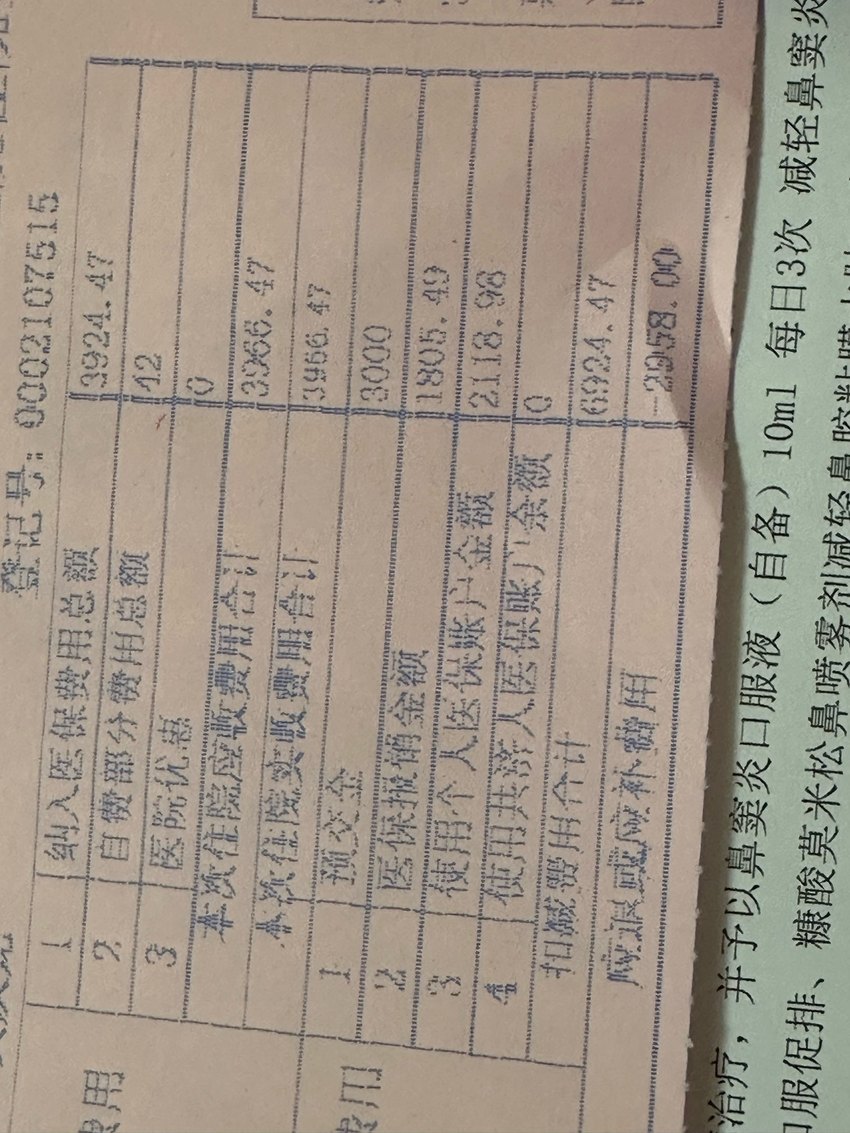 登记号：0002107515
1 纳入医保费用总额 3924.47
2 自费部分费用总额 42
3 医院优惠 0
本次住院应收费用合计 3966.47
本次住院实收费用合计 3966.47
1 预交金 3000
2 医保报销金额 1805.49
3 使用个人医保账户金额 2118.98
4 使用共济人医保账户余额 0
扣减费用合计 6924.47
应退或应补费用 -2958.00
费用
费用
治疗，并予以鼻窦炎口服液（自备）10ml 每日3次 减轻鼻窦炎
口服促排、糠酸莫米松鼻喷雾剂减轻鼻腔粘膜